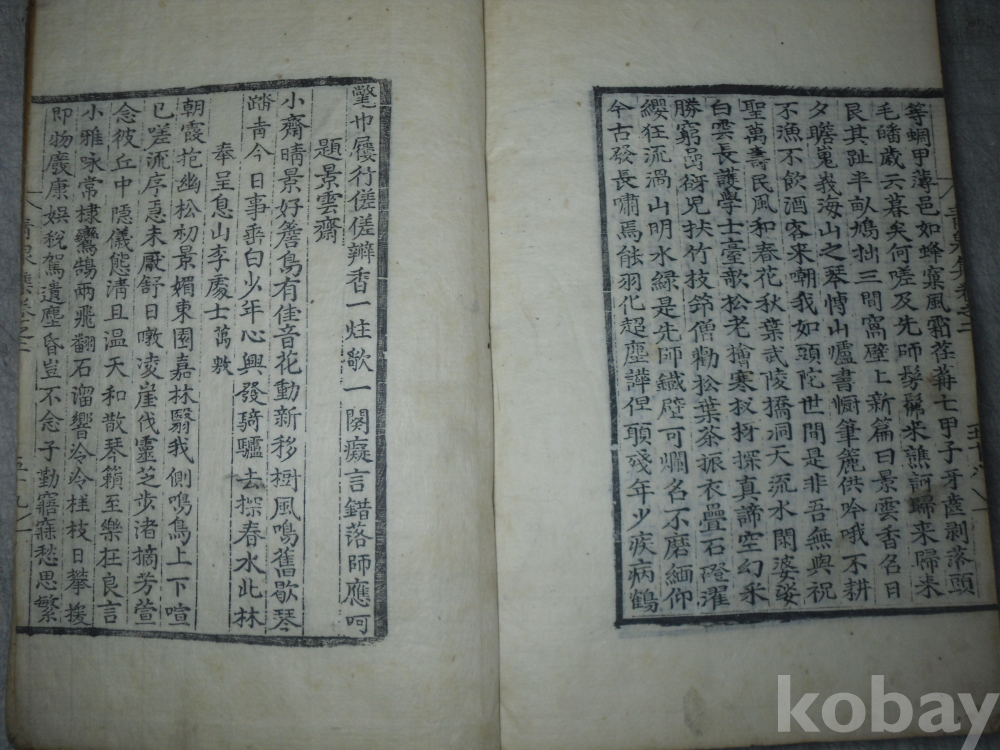 等蜩甲薄邑如蜂窠風霜荏苒七甲子牙齒剥落頭
毛皤歲云暮矣何嗟及先師髣髴来譙訶歸来歸来
艮其趾半畝鳩拙三間窩壁上新篇曰景雲香名日
夕瞻嵬峩海山之琴慱山爐書㕑筆簏供吟哦不耕
不漁不飮酒客来嘲我如頭陀世間是非吾無與祝
聖萬壽民風和春花秋葉武陵橋洞天流水閑婆娑
白雲長護學士臺歌松老檜寒杈枒探真諦空幻采
勝窮嵒谺児扶竹技筇僧勸松葉茶振衣疊石磴濯
纓狂流渦山明水緑是先師鐵壁可爛名不磨緬仰
今古發長嘯焉能羽化超塵譁但願殘年少疾病鶴
氅巾屨行傞傞瓣香一炷歌一闋癡言錯落師應呵
題景雲齋
小齋晴景好簷鳥有佳音花動新移樹風鳴舊歇琴
踏青今日事垂白少年心興發騎驢去探春水此林
奉呈息山李處士萬敷
朝霞抱幽松初景媚東園嘉林翳我側鳴鳥上下喧
已嗟流序忽未厭舒日暾凌崖伐靈芝步渚摘芳萱
念彼丘中隱儀態淸且温天和散琴籟至樂在良言
小雅咏常棣鸞鵠兩飛翻石溜響泠泠桂枝日攀援
即物展康娛稅駕遺塵昏豈不念子勤寤寐愁思繁
五十八
五十九